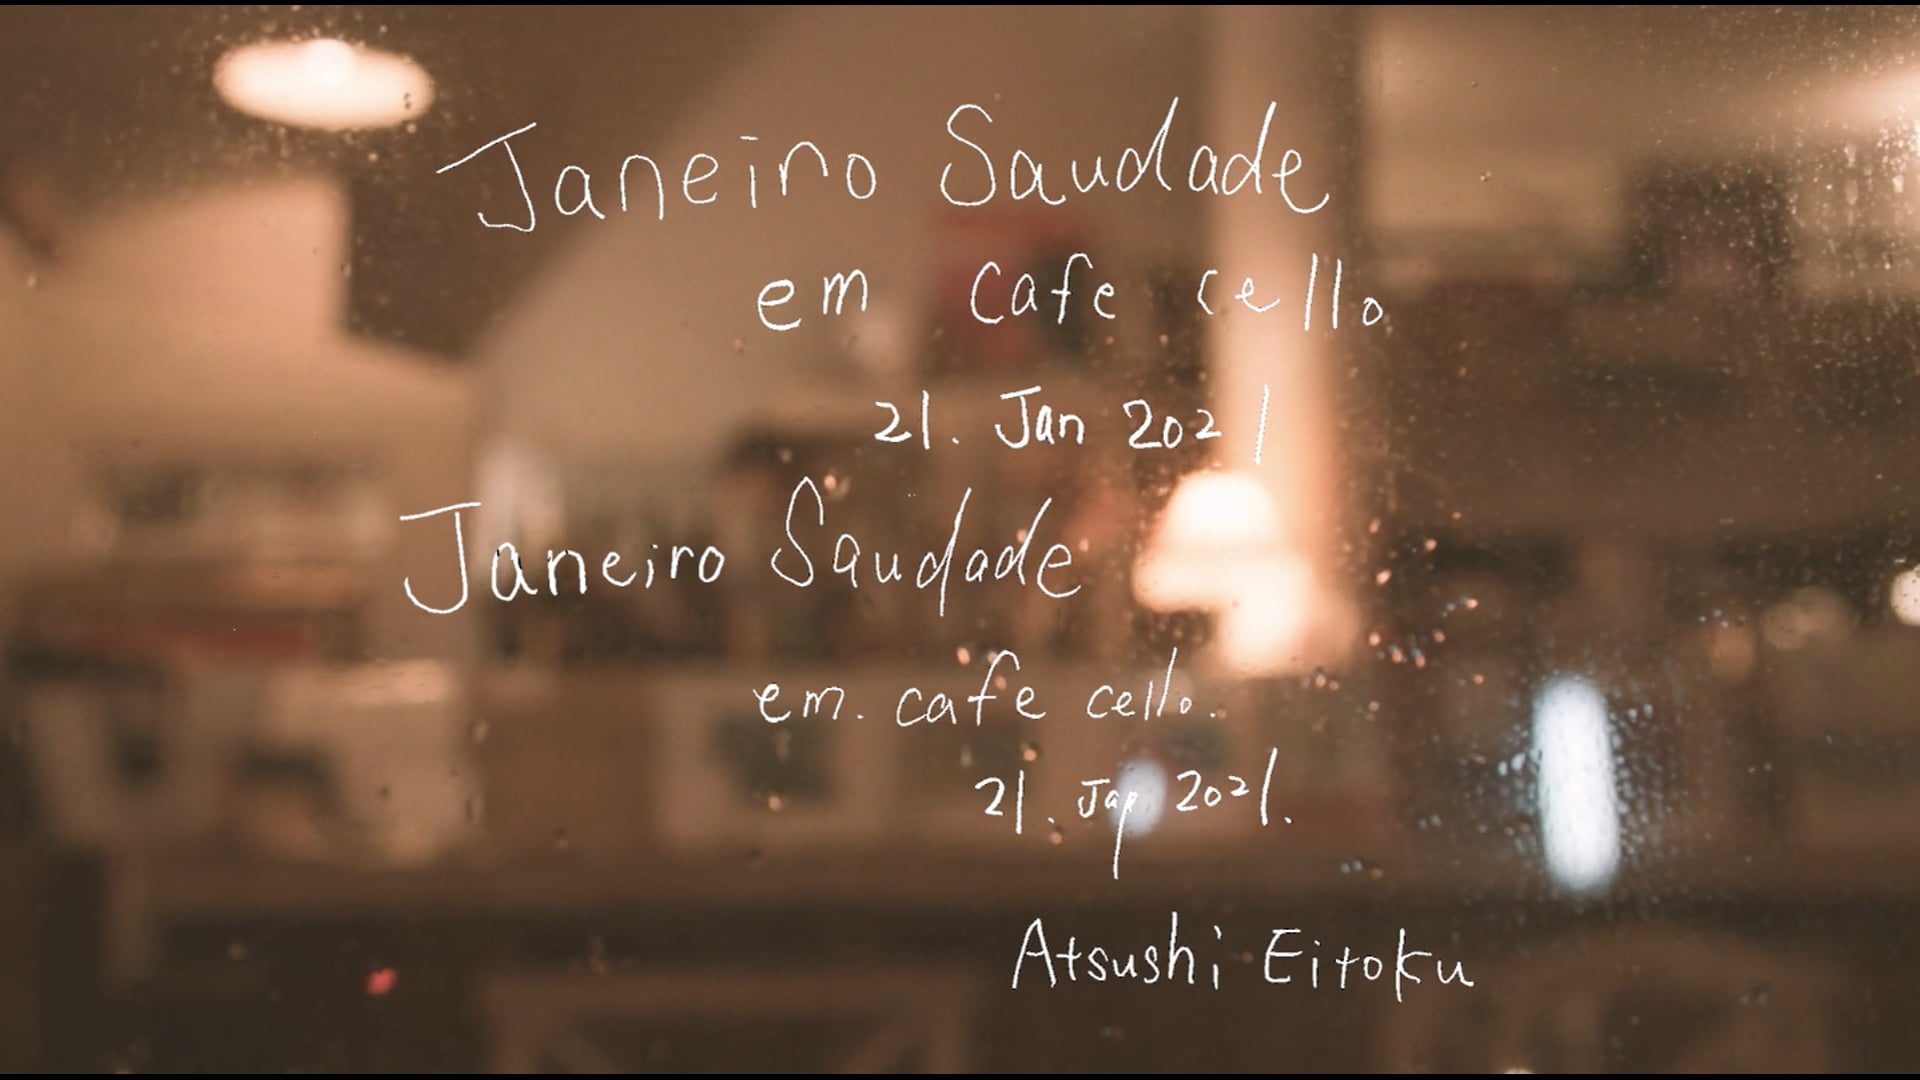 Janeiro Saudade
em cafe cello
21. Jan 2021
Janeiro Saudade
em. cafe cello.
21. Jan 2021.
Atsushi Eitoku